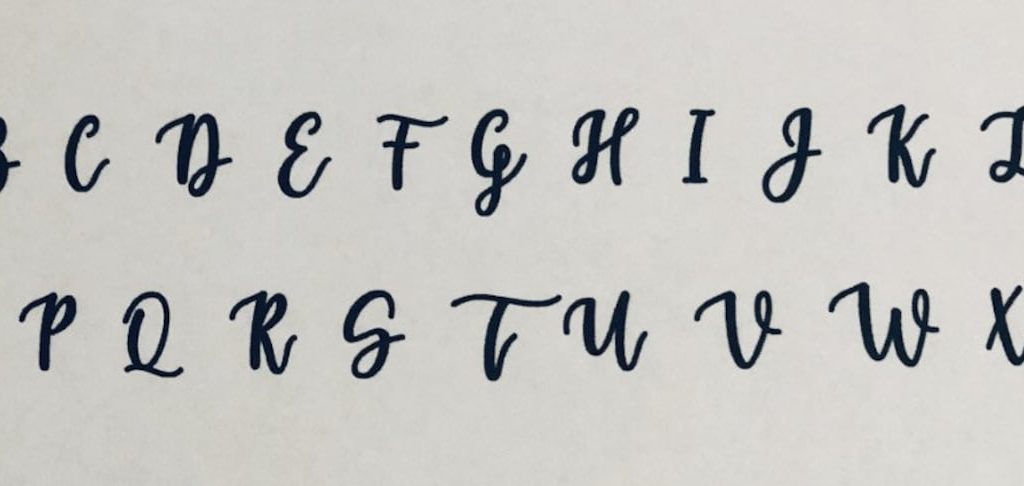 B C D E F G H I J K L
P Q R S T U V W X